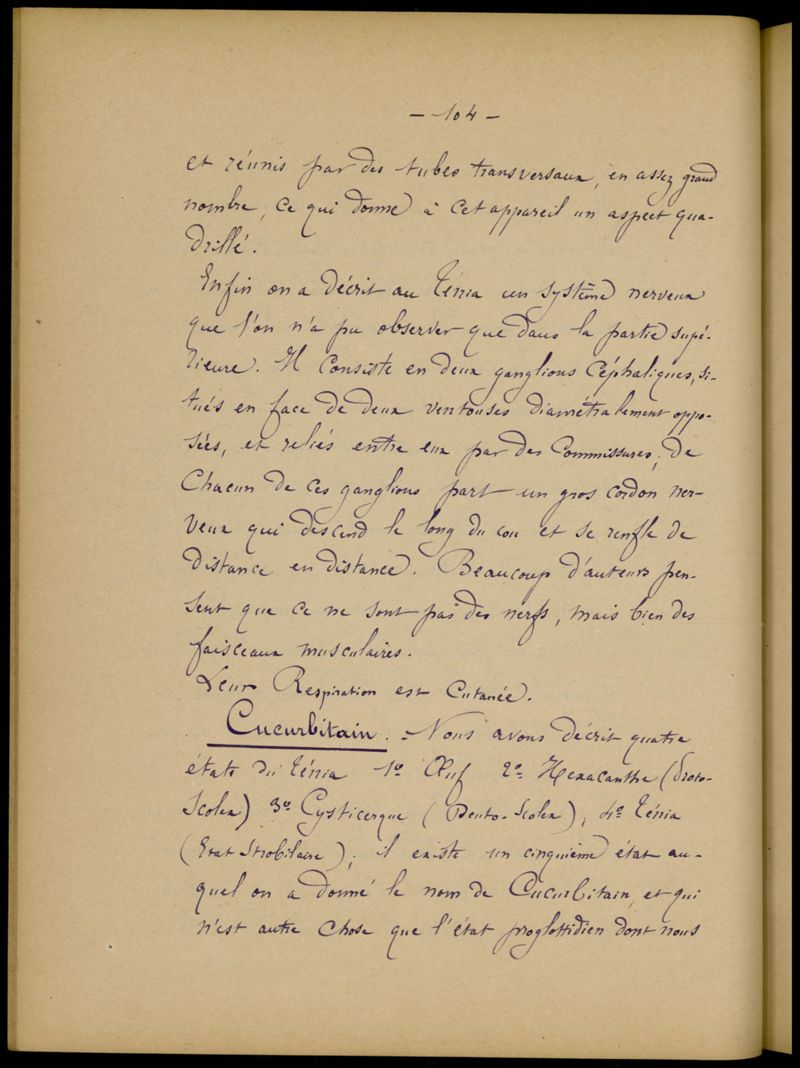 - 104 -
et réunis par des tubes transversaux, en assez grand
nombre, ce qui donne à cet appareil un aspect qua-
drillé.
Enfin on a décrit au Ténia un système nerveux
que l'on n'a pu observer que dans la partie supé-
rieure. Il consiste en deux ganglions Céphaliques, si-
tués en face de deux ventouses diamétralement oppo-
sées, et reliés entre eux par des Commissures; de
Chacun de ces ganglions part un gros cordon ner-
veux qui descend le long du cou et se renfle de
distance en distance. Beaucoup d'auteurs pen-
sent que ce ne sont pas des nerfs, mais bien des
faisceaux musculaires.
Leur Respiration est Cutanée.
Cucurbitain. - Nous avons décrit quatre
états du Ténia 1º Œuf 2º Hexacanthe (Proto-
Scolex) 3º Cysticerque (Deuto-Scolex); 4º Ténia
(Etat Strobilaire); il existe un cinquième état au-
quel on a donné le nom de Cucurbitain, et qui
n'est autre chose que l'état proglottidien dont nous